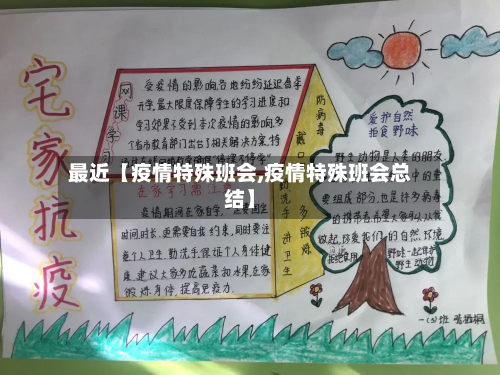 宅家抗疫
网课学习
受疫情的影响各地纷纷延迟春季
开学,最大限度保障学生的学习进度和
学习效果不受到本次疫情的影响,多
个省市教育部门出台了相关解决方案,停
最近【疫情特殊班会,疫情特殊班会总
结】
疫情期间在家自学,一定要固定
时间,时长,更需要自我约束,同时要注
意个人卫生,勤洗手,保证个人身体健
康,建议大家多吃蔬菜和水果,在家
锻炼身体,提高免疫力.
防病毒
戴口
勤洗手
讲卫生
爱护自然
拒食野味
野生动物是人类的朋友
中的重
要组成部分,也是许多病毒
的携带者,希望大家可以从我
做起,珍爱我们的自然环境,
拒绝食用野味,一起保护
野生动物
一(3)班